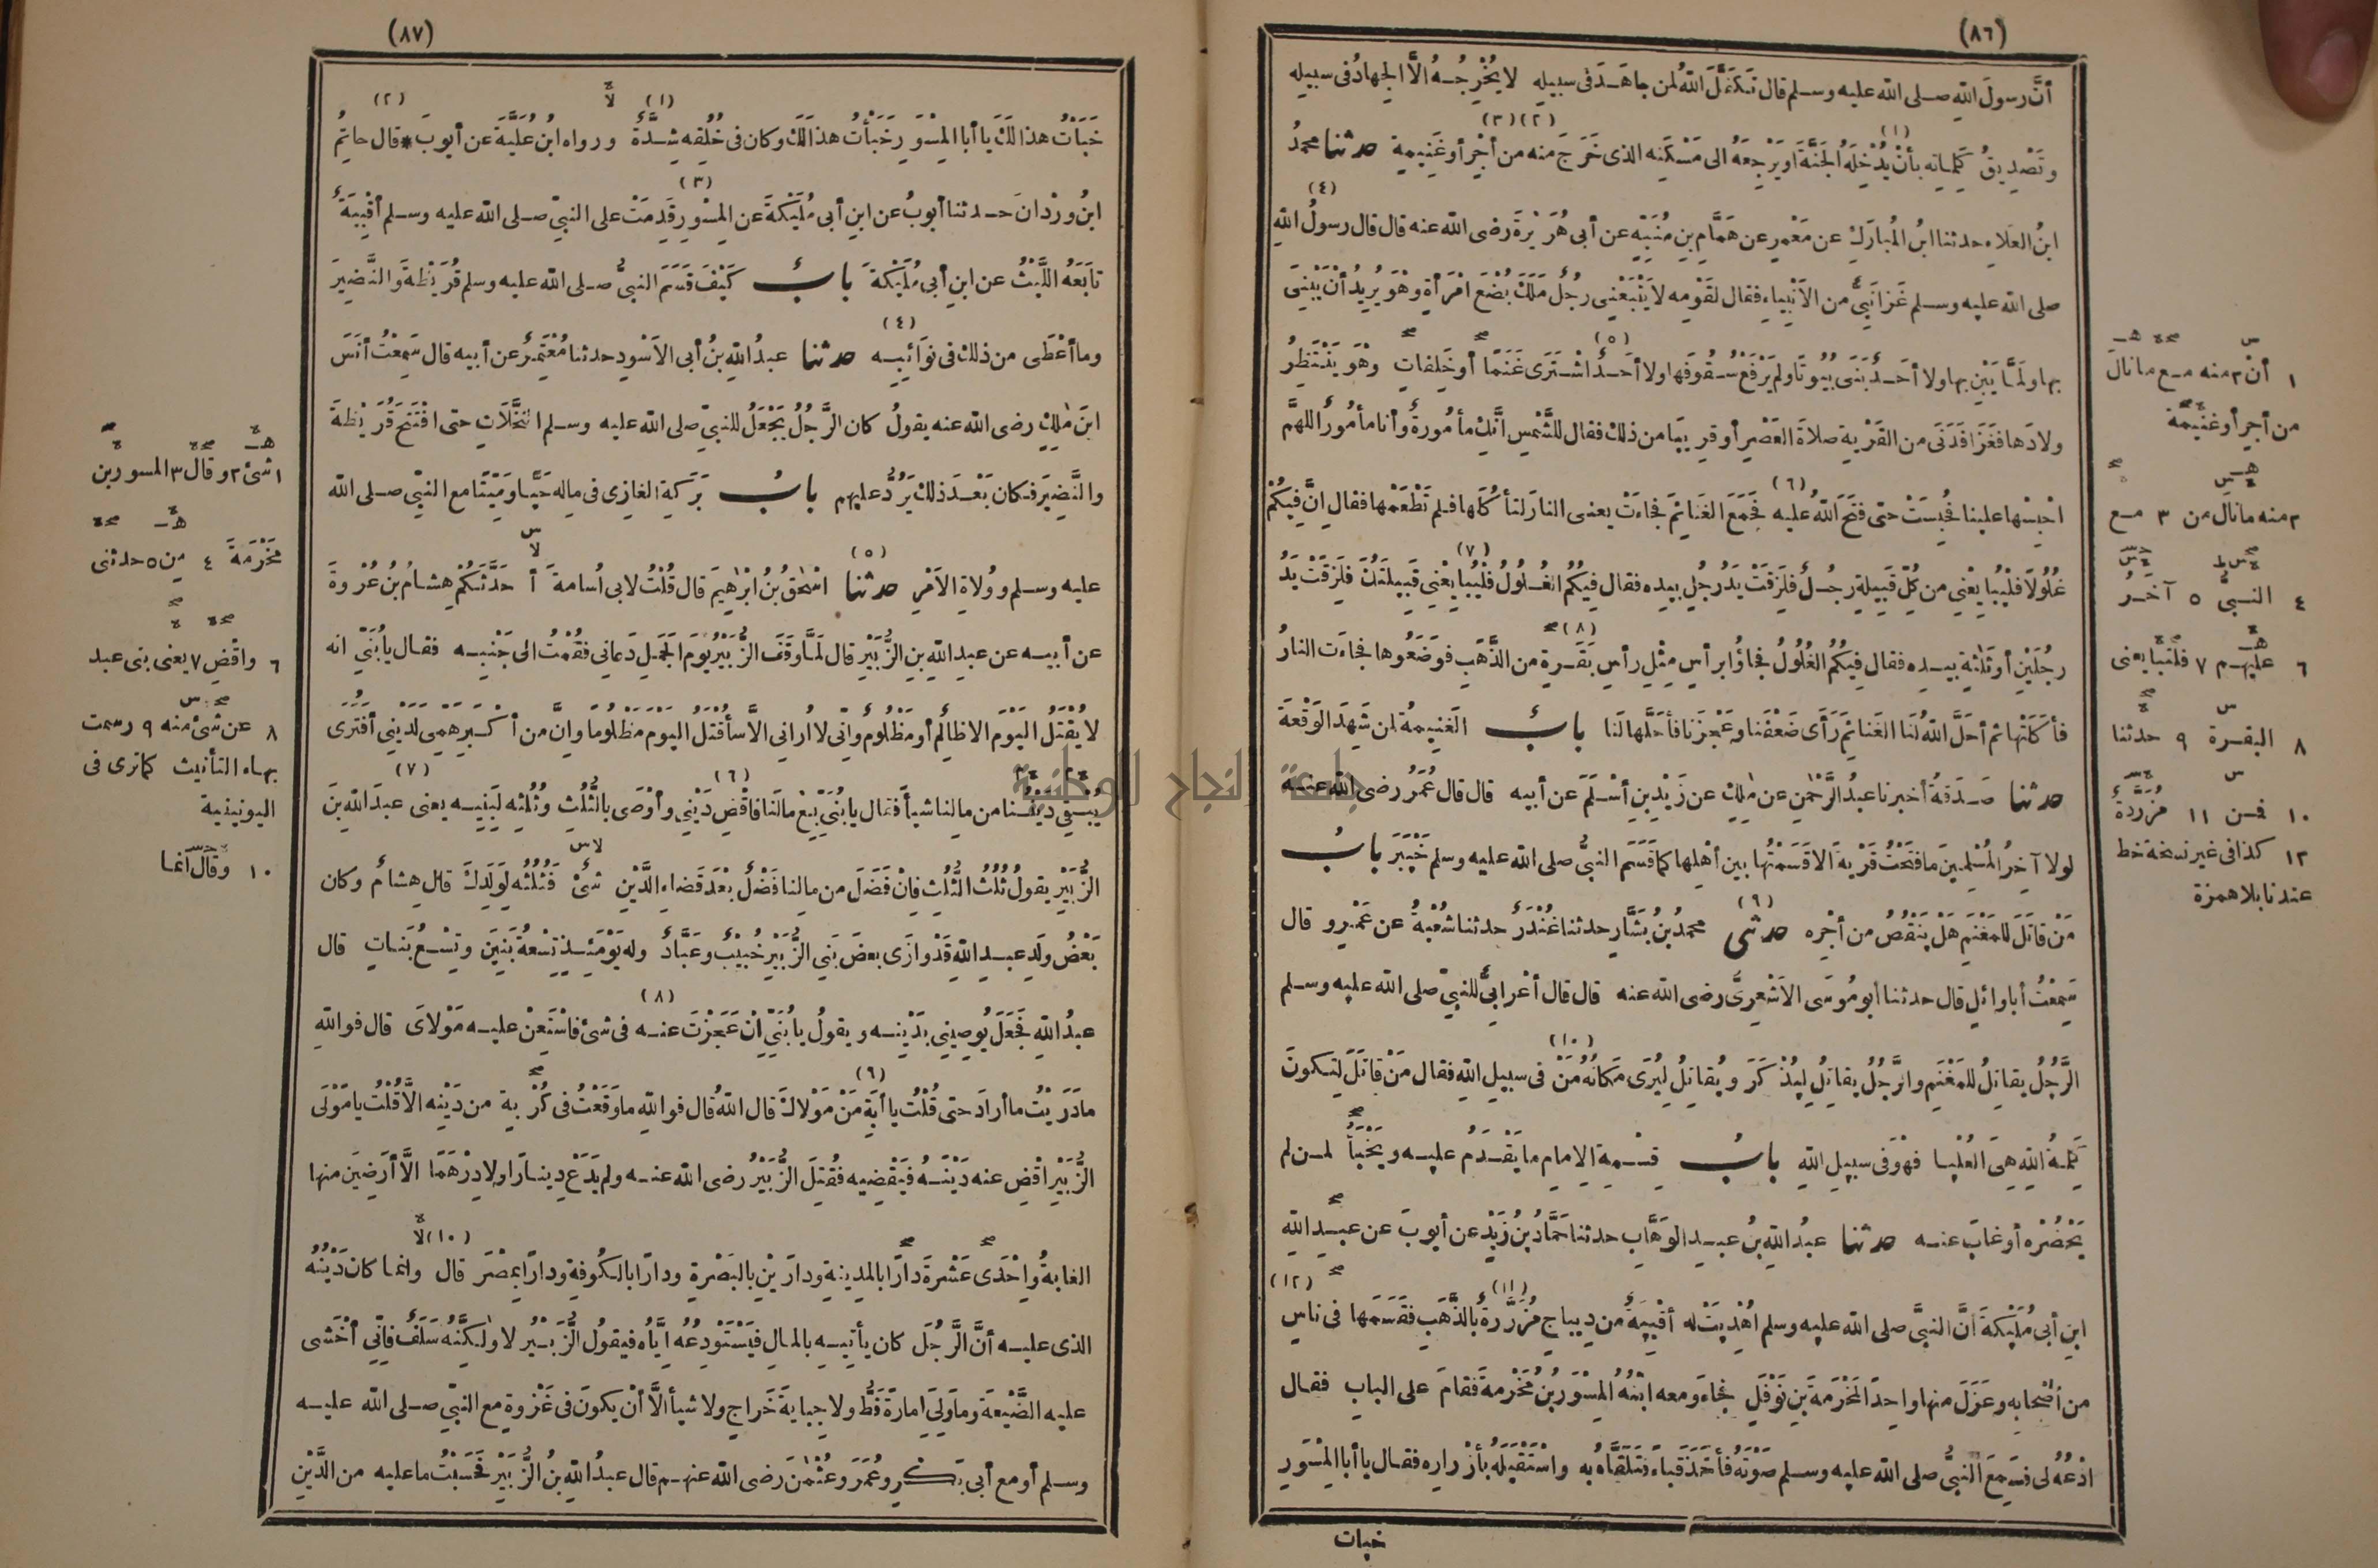 (٨٦)
أنَّ رسولَ اللهِ صلى الله عليه وسلم قال تَكَفَّلَ اللهُ لمن جاهَدَ فى سبيلِهِ لا يُخْرِجُهُ الَّا الجهادُ فى سبيلِه
(١) (٢)(٣)
وتَصْديقُ كَلِماتِه بأَنْ يُدْخِلَهُ الجَنَّةَ أو يَرْجِعَهُ الى مَسْكَنِه الذى خَرَجَ منه من أجْرٍ أو غَنِيمةٍ حدثنا محمدُ
(٤)
ابنُ العَلاءِ حدثنا ابنُ المُبارَكِ عن مَعْمرٍ عن هَمَّامِ بنِ مُنَبِّهٍ عن أبى هُرَيْرةَ رضى الله عنه قال قال رسولُ اللهِ
صلى الله عليه وسلم غَزا نَبِىٌّ من الأنْبِياءِ فقال لِقَوْمِه لا يَتْبَعْنِى رجُلٌ مَلَكَ بُضْعَ امْرَأةٍ وهْوَ يُرِيدُ أنْ يَبْنِىَ
(٥)
بها ولَمَّا يَبْنِ بها ولا أحَدٌ بَنَى بُيُوتًا ولم يَرْفَعْ سُقُوفَها ولا أحَدٌ اشْتَرَى غَنَمًا أو خَلِفاتٍ وهْوَ يَنْتَظِرُ
ولادَها فغَزَا فدَنَى من القَرْيةِ صلاةَ العَصْرِ أو قَرِيبًا من ذلك فقال للشَّمْسِ انَّكِ مأمُورةٌ وأنا مأمُورٌ اللهمَّ
(٦)
احْبِسْها علينا فحُبِسَتْ حتى فتَحَ اللهُ عليه فجَمَعَ الغَنائِمَ فجاءَتْ يعنى النارَ لتأكُلَها فلم تَطْعَمْها فقال انَّ فيكُمْ
(٧)
غُلُولًا فلْيُبايِعْنِى من كُلِّ قَبِيلةٍ رجُلٌ فلَزِقَتْ يَدُ رجُلٍ بيدِه فقال فيكُمُ الغُلُولُ فلْيُبايِعْنِى قَبِيلتُكَ فلَزِقَتْ يَدُ
(٨)
رجُلَيْنِ أو ثَلٰثةٍ بيدِه فقال فيكُمُ الغُلُولُ فجاؤُا برأسٍ مِثْلِ رأسِ بَقَرةٍ من الذَّهَبِ فوَضَعُوها فجاءَت النارُ
فأكَلَتْها ثم أحَلَّ اللهُ لَنا الغَنائِمَ رَأَى ضَعْفَنا وعَجْزَنا فأحَلَّها لَنا بابٌ الغَنِيمةُ لمن شَهِدَ الوَقْعةَ
حدثنا صَدَقةُ أخبرنا عبدُ الرَّحْمٰنِ عن مٰلِكٍ عن زَيْدِ بنِ أسْلَمَ عن أبيه قال قال عُمَرُ رضى الله عنه
لولا آخِرُ المُسْلِمينَ ما فتَحْتُ قَرْيةً الا قَسَمْتُها بين أهْلِها كما قَسَمَ النبىُّ صلى الله عليه وسلم خَيْبَرَ بابُ
(٩)
مَنْ قاتَلَ للمَغْنَمِ هَلْ يَنْقُصُ من أجْرِه حدثنى محمدُ بنُ بَشَّارٍ حدثنا غُنْدَرٌ حدثنا شُعْبةُ عن عَمْرٍو قال
سَمِعْتُ أبا وائِلٍ قال حدثنا أبو مُوسَى الأشْعَرِىُّ رضى الله عنه قال قال أعْرابِىٌّ للنبىِّ صلى الله عليه وسلم
(١٠)
الرَّجُلُ يقاتِلُ للمَغْنَمِ والرَّجُلُ يقاتِلُ لِيُذْكَرَ ويُقاتِلُ لِيُرَى مَكانُهُ مَنْ فى سبيلِ اللهِ فقال مَنْ قاتَلَ لِتَكونَ
كَلِمةُ اللهِ هِىَ العُلْيا فهْوَ فى سبيلِ اللهِ بابُ قِسْمةِ الامامِ ما يَقْدَمُ عليه ويَخْبَأُ لمن لم
يَحْضُرْهُ أو غابَ عنه حدثنا عبدُ اللهِ بنُ عبدِ الوهَّابِ حدثنا حَمَّادُ بنُ زَيْدٍ عن أيوبَ عن عبدِ اللهِ
(١١) (١٢)
ابنِ أبى مُلَيْكةَ أنَّ النبىَّ صلى الله عليه وسلم اُهْدِيَتْ له أقْبِيةٌ من دِيباجٍ مُزَرَّرةٌ بالذَّهَبِ فقَسَمَها فى ناسٍ
من أصْحابِه وعَزَلَ منها واحِدًا لِمَخْرَمةَ بنِ نَوْفَلٍ فجاءَ ومعه ابْنُهُ المِسْوَرُ بنُ مَخْرمةَ فقامَ على البابِ فقال
ادْعُهُ لى فسَمِعَ النبىُّ صلى الله عليه وسلم صَوْتَهُ فأخَذَ قَباءً فتَلَقَّاهُ به واسْتَقْبَلَهُ بأزْرارِه فقال يا أبا المِسْوَرِ
خبأت
١ أنْ ٢ منه مع ما نالَ
من أجرٍ أو غنيمة
٢ منه ما نالَ من ٣ مع
٤ النبىُّ ٥ آخَرُ
٦ عليهم ٧ فلتبايعنى
٨ البقرة ٩ حدثنا
١٠ فمن ١١ مزرَّدة
١٢ كذا فى غير نسخة خط
عندنا بلا همزة
(٨٧)
(١) لا (٢)
خَبَأْتُ هذا لَكَ يا أبا المِسْوَرِ خَبَأْتُ هذا لَكَ وكان فى خُلُقِه شِدَّةٌ ورواه ابنُ عُلَيَّةَ عن أيوبَ * قال حاتِمُ
(٣)
ابنُ ورْدانَ حدثنا أيوبُ عن ابنِ أبى مُلَيْكةَ عن المِسْوَرِ قَدِمَتْ على النبىِّ صلى الله عليه وسلم أقْبِيةٌ
تابَعَهُ اللَّيْثُ عن ابنِ أبى مُلَيْكةَ بابٌ كَيْفَ قَسَمَ النبىُّ صلى الله عليه وسلم قُرَيْظةَ والنَّضِيرَ
(٤)
وما أعْطَى من ذلك فى نوائِبِه حدثنا عبدُ اللهِ بنُ أبى الأسْودِ حدثنا مُعْتَمِرٌ عن أبيه قال سَمِعْتُ أنَسَ
ابنَ مٰلِكٍ رضى الله عنه يقولُ كان الرَّجُلُ يَجْعَلُ للنبىِّ صلى الله عليه وسلم النَّخَلاتِ حتى افْتَتَحَ قُرَيْظةَ
والنَّضِيرَ فكان بَعْدَ ذلك يَرُدُّ عليهم بابُ بَرَكةِ الغازِى فى مالِه حَيًّا ومَيِّتًا مع النبىِّ صلى الله
(٥) لا س
عليه وسلم ووُلاةِ الأمْرِ حدثنا اسْحٰقُ بنُ ابْرٰهِيمَ قال قُلْتُ لأبى اُسامةَ أَ حَدَّثَكُمْ هِشامُ بنُ عُرْوةَ
عن أبيه عن عبدِ اللهِ بنِ الزُّبَيْرِ قال لَمَّا وقَفَ الزُّبَيْرُ يَوْمَ الجَمَلِ دَعانى فقُمْتُ الى جَنْبِه فقال يا بُنَىِّ انه
لا يُقْتَلُ اليَوْمَ الا ظالِمٌ أو مَظْلُومٌ وانِّى لا اُرانى الَّا سأُقْتَلُ اليَوْمَ مَظْلُومًا وانَّ من أكْبَرِ هَمِّى لَدَيْنِى أفَتُرَى
(٦) (٧)
يُبْقِى دَيْنُنا من مالِنا شيأً فقال يا بُنَىِّ بِعْ مالَنا فاقْضِ دَيْنِى وأوْصَى بالثُّلُثِ وثُلُثِه لِبَنِيهِ يعنى عبدَ اللهِ بنَ
لا س
الزُّبَيْرِ يقولُ ثُلُثُ الثُّلُثِ فانْ فَضَلَ من مالِنا فَضْلٌ بعْدَ قَضاءِ الدَّيْنِ شئٌ فَثُلُثُه لوَلَدِكَ قال هشامٌ وكان
بَعْضُ ولَدِ عبدِ اللهِ قدْ وازَى بعضَ بَنِى الزُّبَيْرِ خُبَيْبٌ وعَبَّادٌ وله يَوْمَئِذٍ تِسْعةُ بَنِينَ وتِسْعُ بَناتٍ قال
(٨)
عبدُ اللهِ فجَعَلَ يُوصِينِى بدَيْنِه ويقولُ يا بُنَىِّ انْ عَجَزْتَ عنه فى شئٍ فاسْتَعِنْ عليه مَوْلاىَ قال فواللهِ
(٩)
ما دَرَيْتُ ما أرادَ حتى قُلْتُ يا أبَةِ مَنْ مَوْلاكَ قال اللهُ قال فواللهِ ما وَقَعْتُ فى كُرْبةٍ من دَيْنِه الَّا قُلْتُ يا مَوْلَى
الزُّبَيْرِ اقْضِ عنه دَيْنَهُ فيَقْضِيهِ فقُتِلَ الزُّبَيْرُ رضى الله عنه ولم يَدَعْ دِينارًا ولا دِرْهَمًا الَّا أرَضِينَ منها
(١٠) لا
الغابةُ واحْدَى عَشْرةَ دارًا بالمدينةِ ودارَيْنِ بالبَصْرةِ ودارًا بالكُوفةِ ودارًا بمِصْرَ قال وانما كان دَيْنُهُ
الذى عليه أنَّ الرَّجُلَ كان يأتِيهِ بالمالِ فيَسْتَوْدِعُهُ ايَّاهُ فيقولُ الزُّبَيْرُ لا ولٰكِنَّهُ سَلَفٌ فانِّى أخْشَى
عليه الضَّيْعةَ وما ولِىَ امارةً قَطُّ ولا جِبايةَ خَراجٍ ولا شيأً الَّا أن يكونَ فى غَزْوةٍ مع النبىِّ صلى الله عليه
وسلم أو مع أبى بَكْرٍ وعُمَرَ وعُثْمٰنَ رضى الله عنهم قال عبدُ اللهِ بنُ الزُّبَيْرِ فحَسَبْتُ ما عليه من الدَّيْنِ
١ شئ ٢ وقال ٣ المسور بن
مَخْرَمةَ ٤ من ٥ حدثنى
٦ واقض ٧ يعنى بنى عبد
٨ عن شئ منه ٩ رسمت
بهاء التأنيث كما ترى فى
اليونينية
١٠ وقال انما
جامعة النجاح الوطنية